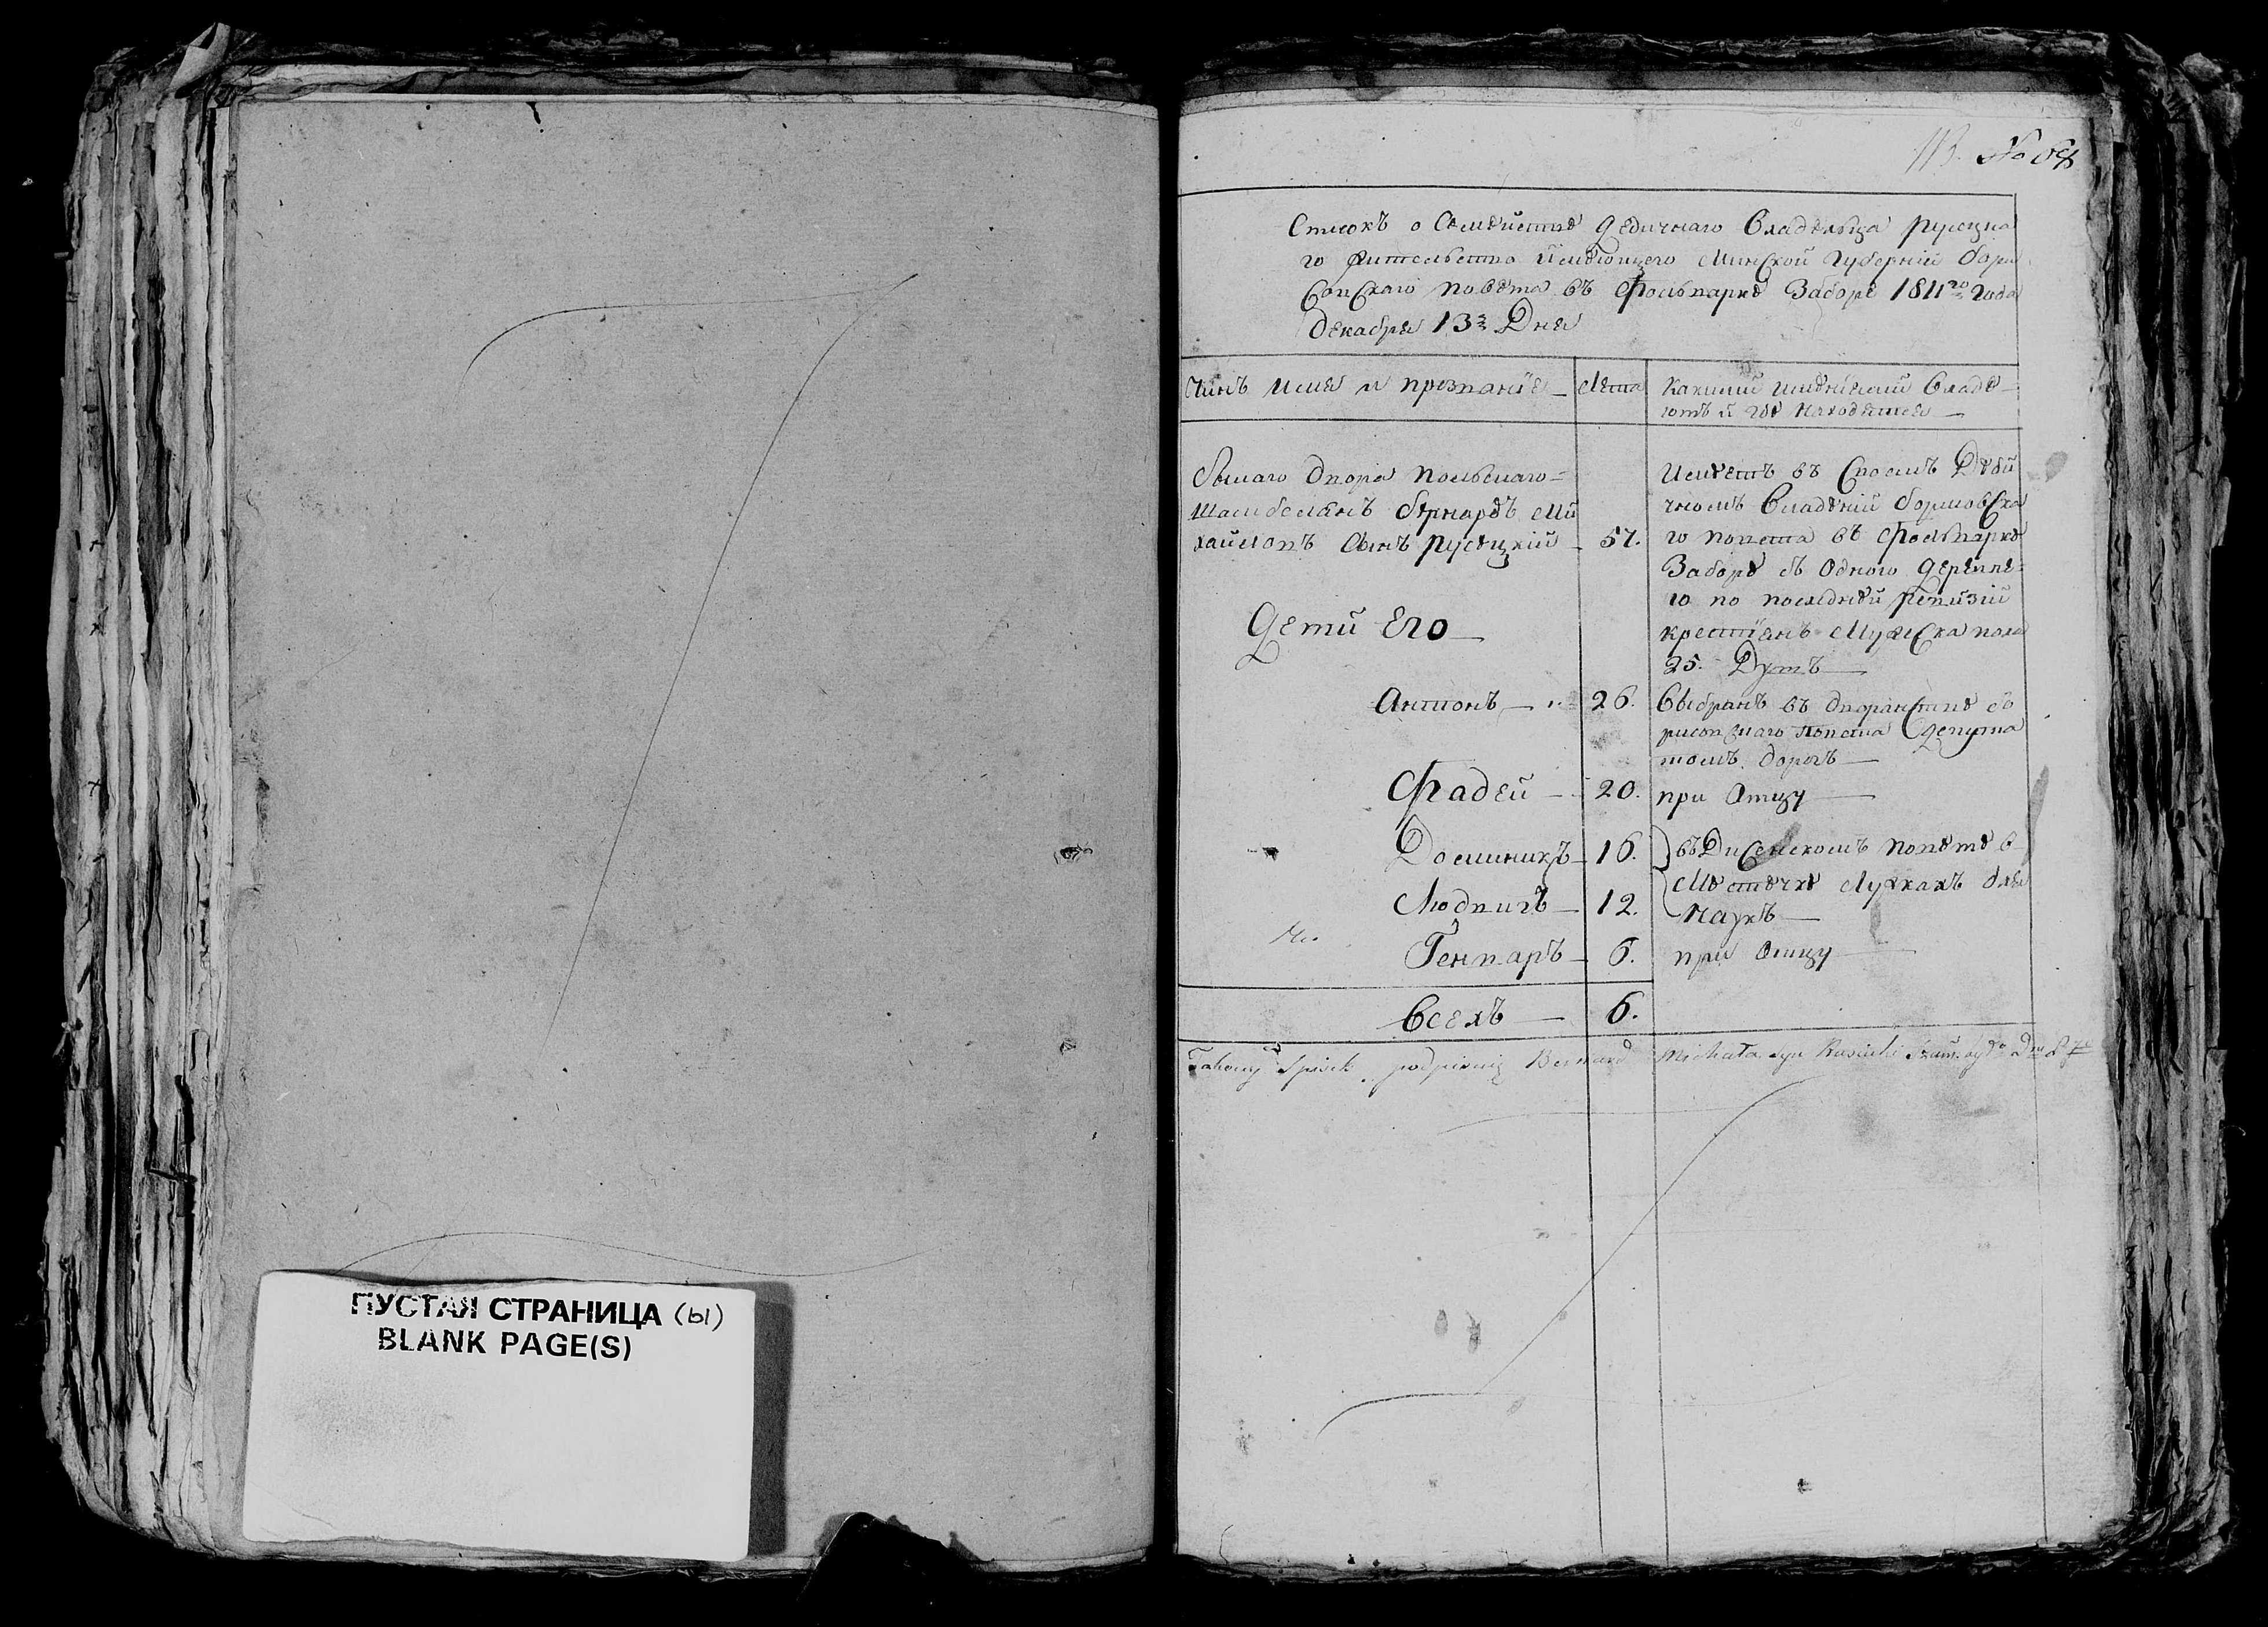 ПУСТАЯ СТРАНИЦА (ы)
BLANK PAGE(S)
113. №
Списокъ о Семействе Дедичнаго Владельца Русецка
го жительство Имеющего Минской Губерніи Бори
совскаго повета въ Фольварке Заборе 1811го Года
Декабря 13 Дня
Чинъ Имя и прозваніе
Лета
Какими имениями Владе-
ютъ и где находятся
бывшаго Двора Польскаго
Шамбелянъ бернардъ Ми
хайловъ Сынъ Русецкій
57.
Имеетъ въ Своемъ Деди
чномъ Владеніи борисовска
го повета въ Фольварке
Заборе съ Одного деревне
ю по последней ревизіи
крестіянъ Мужска пола
25. Душъ
Дети Его
Антонъ 26. Выбранъ въ дворянстве бо
рисовскаго повета Депута
томъ дорогъ
Фадей 20. при Отцу
Доминикъ 16. въ Дисенскомъ повете в
Местечке Лужкахъ для
Людвигъ 12. Наукъ
Генваръ 6. при Отцу
Всехъ 6.
Takowy Spisek podpisuię Bernard Michała syn Rusiecki Szam.